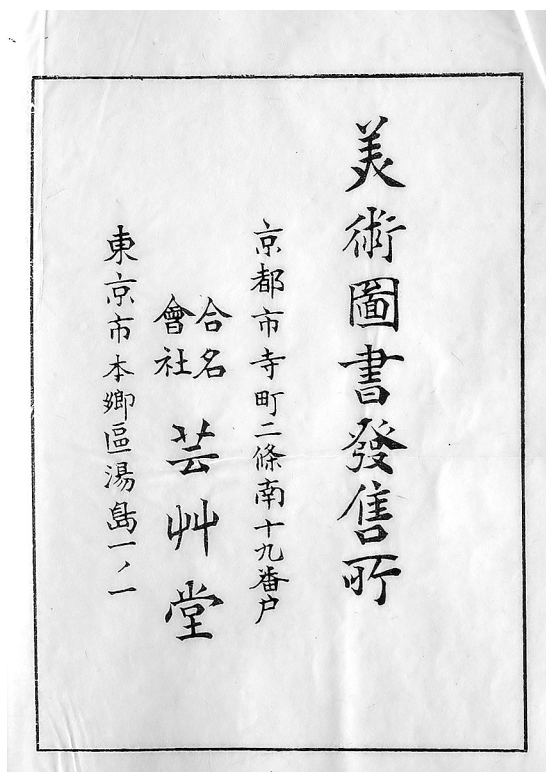 美術圖書發售所
京都市寺町二條南十九番户
合名會社 芸艸堂
東京市本郷區湯島一ノ一